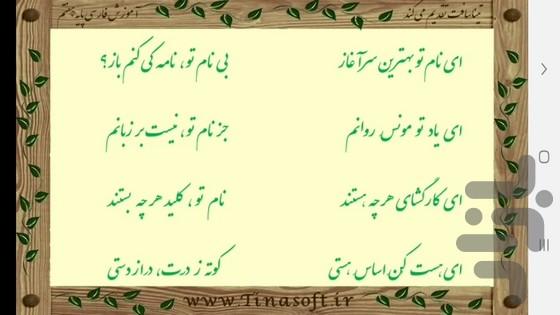 تیناسافت تقدیم می‌کند آموزش فارسی پایه هشتم
ای نام تو بهترین سرآغاز بی نام تو، نامه کی کنم باز؟
ای یاد تو مونس روانم جز نام تو، نیست بر زبانم
ای کارگشای هرچه هستند نام تو، کلید هرچه بستند
ای هست کن اساس هستی کوته ز درت، دراز دستی
www.Tinasoft.ir